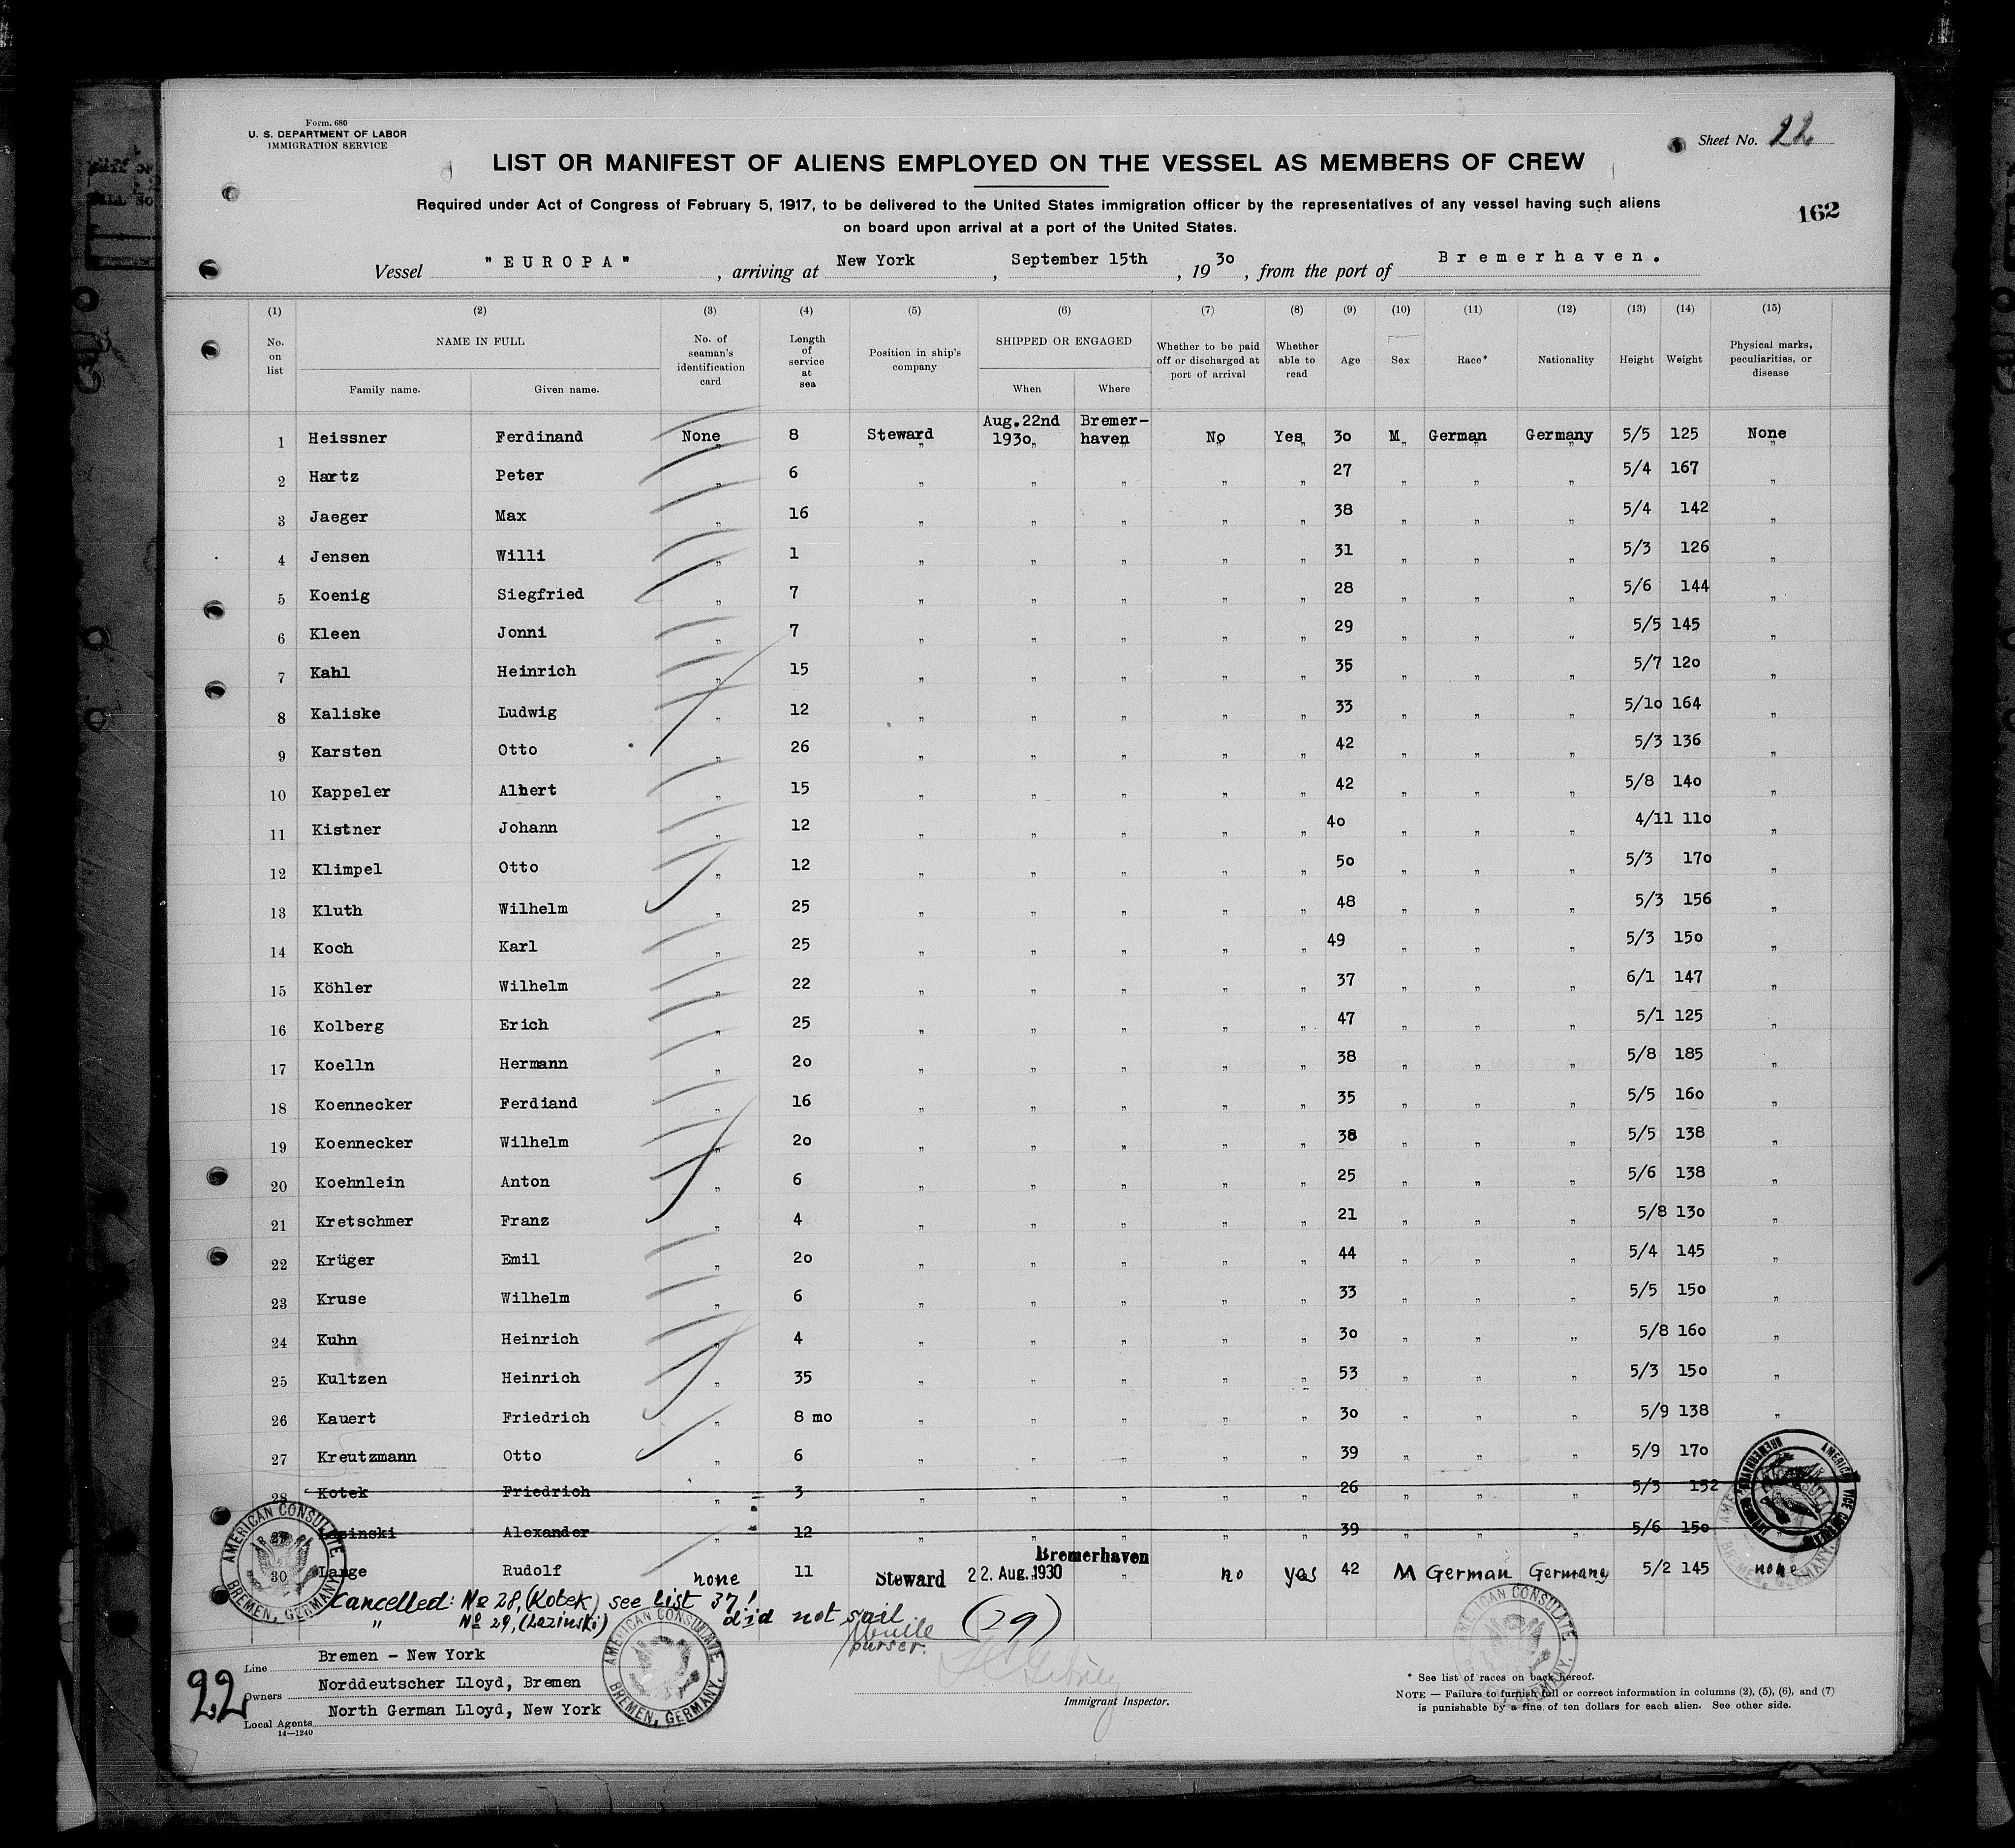 Form. 680
U. S. DEPARTMENT OF LABOR
IMMIGRATION SERVICE
Sheet No. 22
LIST OR MANIFEST OF ALIENS EMPLOYED ON THE VESSEL AS MEMBERS OF CREW
Required under Act of Congress of February 5, 1917, to be delivered to the United States immigration officer by the representatives of any vessel having such aliens
on board upon arrival at a port of the United States.
162
Vessel "EUROPA", arriving at New York, September 15th, 1930, from the port of Bremerhaven.
(1) (2) (3) (4) (5) (6) (7) (8) (9) (10) (11) (12) (13) (14) (15)
No. on list NAME IN FULL Family name. Given name. No. of seaman's identification card Length of service at sea Position in ship's company SHIPPED OR ENGAGED When Where Whether to be paid off or discharged at port of arrival Whether able to read Age Sex Race* Nationality Height Weight Physical marks, peculiarities, or disease
1 Heissner Ferdinand None 8 Steward Aug.22nd 1930 Bremerhaven No Yes 30 M German Germany 5/5 125 None
2 Hartz Peter „ 6 „ „ „ „ „ 27 „ „ „ 5/4 167 „
3 Jaeger Max „ 16 „ „ „ „ „ 38 „ „ „ 5/4 142 „
4 Jensen Willi „ 1 „ „ „ „ „ 31 „ „ „ 5/3 126 „
5 Koenig Siegfried „ 7 „ „ „ „ „ 28 „ „ „ 5/6 144 „
6 Kleen Jonni „ 7 „ „ „ „ „ 29 „ „ „ 5/5 145 „
7 Kahl Heinrich „ 15 „ „ „ „ „ 35 „ „ „ 5/7 120 „
8 Kaliske Ludwig „ 12 „ „ „ „ „ 33 „ „ „ 5/10 164 „
9 Karsten Otto „ 26 „ „ „ „ „ 42 „ „ „ 5/3 136 „
10 Kappeler Albert „ 15 „ „ „ „ „ 42 „ „ „ 5/8 140 „
11 Kistner Johann „ 12 „ „ „ „ „ 40 „ „ „ 4/11 110 „
12 Klimpel Otto „ 12 „ „ „ „ „ 50 „ „ „ 5/3 170 „
13 Kluth Wilhelm „ 25 „ „ „ „ „ 48 „ „ „ 5/3 156 „
14 Koch Karl „ 25 „ „ „ „ „ 49 „ „ „ 5/3 150 „
15 Köhler Wilhelm „ 22 „ „ „ „ „ 37 „ „ „ 6/1 147 „
16 Kolberg Erich „ 25 „ „ „ „ „ 47 „ „ „ 5/1 125 „
17 Koelln Hermann „ 20 „ „ „ „ „ 38 „ „ „ 5/8 185 „
18 Koennecker Ferdiand „ 16 „ „ „ „ „ 35 „ „ „ 5/5 160 „
19 Koennecker Wilhelm „ 20 „ „ „ „ „ 38 „ „ „ 5/5 138 „
20 Koehnlein Anton „ 6 „ „ „ „ „ 25 „ „ „ 5/6 138 „
21 Kretschmer Franz „ 4 „ „ „ „ „ 21 „ „ „ 5/8 130 „
22 Krüger Emil „ 20 „ „ „ „ „ 44 „ „ „ 5/4 145 „
23 Kruse Wilhelm „ 6 „ „ „ „ „ 33 „ „ „ 5/5 150 „
24 Kuhn Heinrich „ 4 „ „ „ „ „ 30 „ „ „ 5/8 160 „
25 Kultzen Heinrich „ 35 „ „ „ „ „ 53 „ „ „ 5/3 150 „
26 Kauert Friedrich „ 8 mo „ „ „ „ „ 30 „ „ „ 5/9 138 „
27 Kreutzmann Otto „ 6 „ „ „ „ „ 39 „ „ „ 5/9 170 „
28 Kotek Friedrich „ 3 „ „ „ „ „ 26 „ „ „ 5/3 152
29 Lezinski Alexander 12 „ „ „ „ „ 39 „ „ „ 5/6 150 „
30 Lange Rudolf none 11 Steward 22. Aug. 1930 Bremerhaven „ no yes 42 M German Germany 5/2 145 none
Cancelled: No 28, (Kotek) see list 37!
„ No 29, (Lezinski) did not sail (29)
purser.
AMERICAN CONSULATE BREMEN, GERMANY.
AMERICAN CONSULATE BREMEN, GERMANY.
AMERICAN CONSULATE BREMEN, GERMANY.
AMERICAN VICE CONSUL
22
Line Bremen - New York
Owners Norddeutscher Lloyd, Bremen
Local Agents North German Lloyd, New York
14—1240
Immigrant Inspector.
* See list of races on back hereof.
NOTE — Failure to furnish full or correct information in columns (2), (5), (6), and (7)
is punishable by a fine of ten dollars for each alien. See other side.